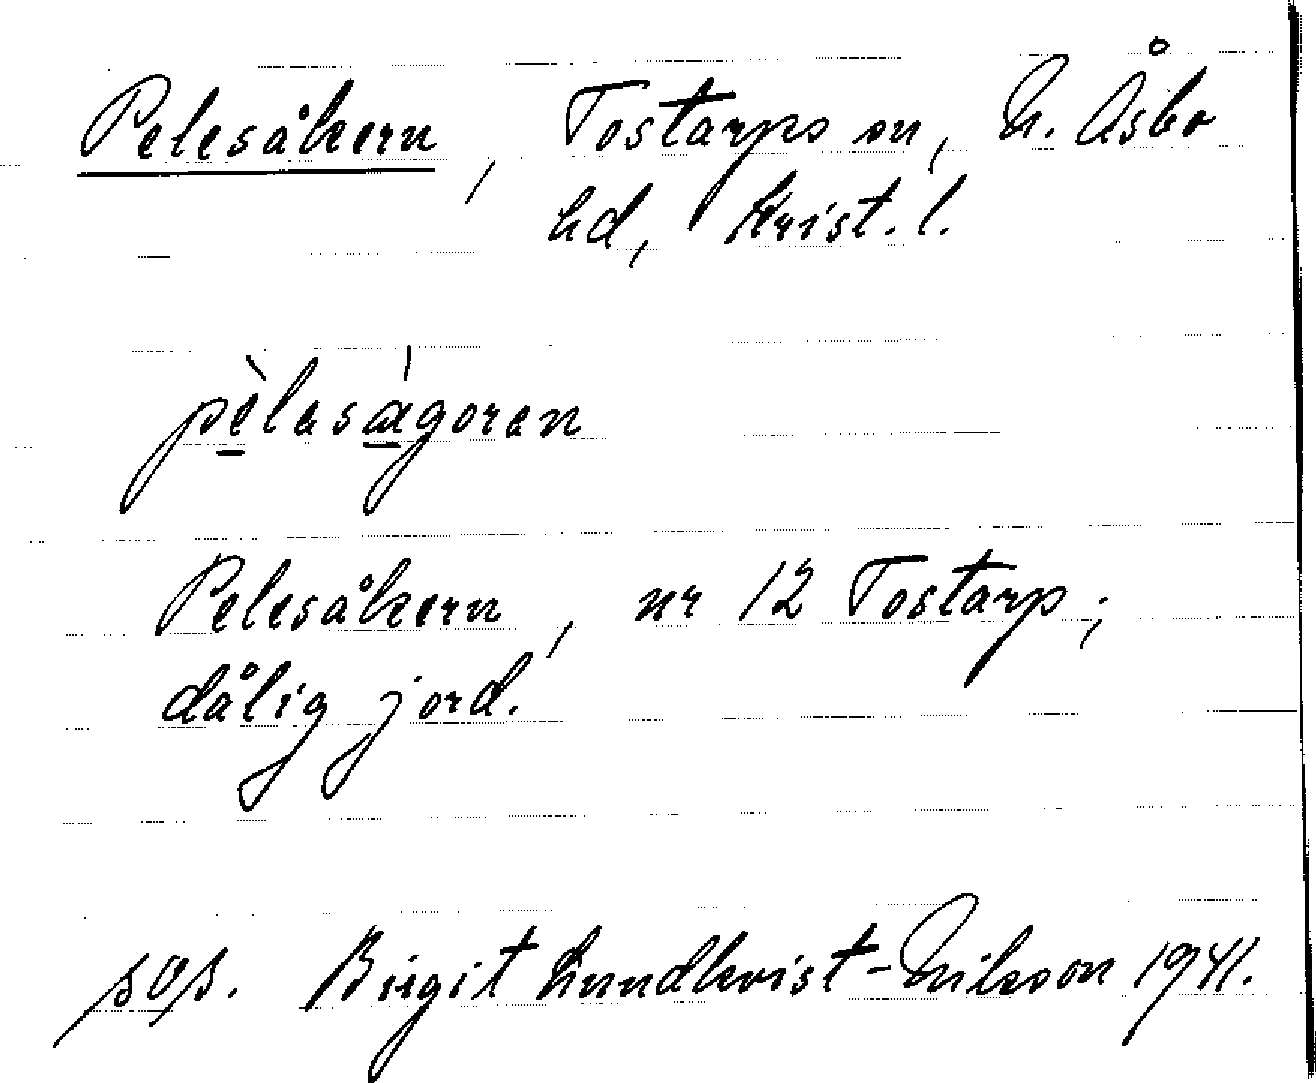 Pelesåkern, Tostarps sn, N. Åsbo
hd, Krist. l.
pèlaságoran
Pelesåkern, nr 12 Tostarp;
dålig jord.
Birgit Lundkvist-Nilsson 1941.